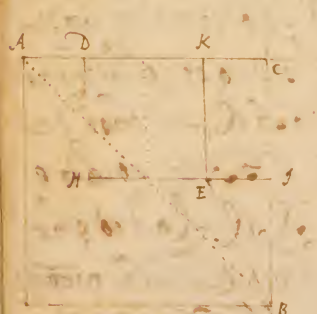 A D K C
H E I
B